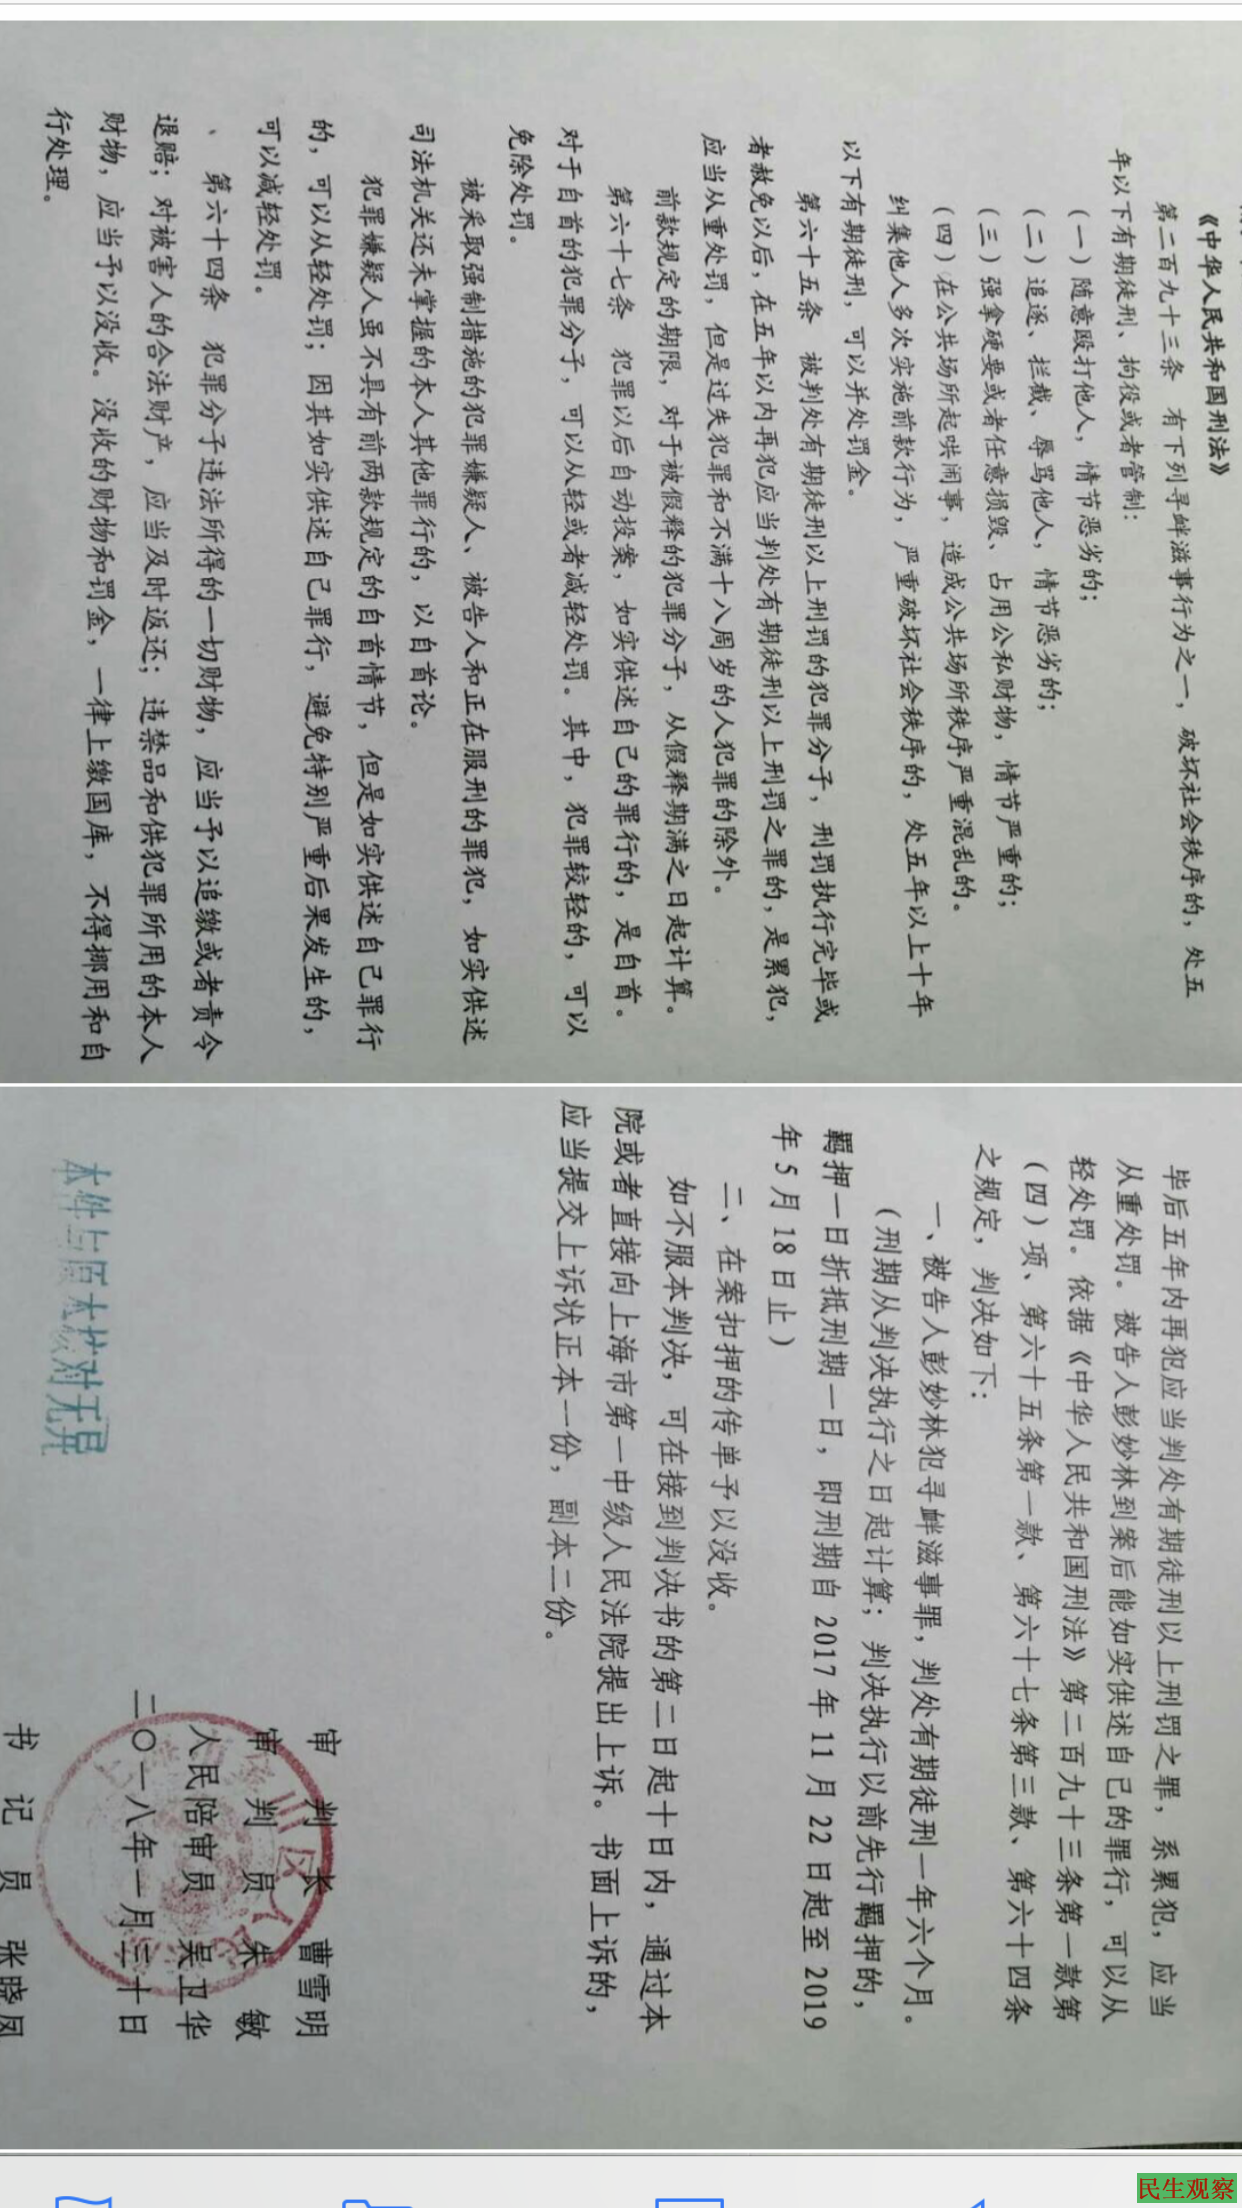 《中华人民共和国刑法》
第二百九十三条　有下列寻衅滋事行为之一，破坏社会秩序的，处五
年以下有期徒刑、拘役或者管制：
（一）随意殴打他人，情节恶劣的；
（二）追逐、拦截、辱骂他人，情节恶劣的；
（三）强拿硬要或者任意损毁、占用公私财物，情节严重的；
（四）在公共场所起哄闹事，造成公共场所秩序严重混乱的。
纠集他人多次实施前款行为，严重破坏社会秩序的，处五年以上十年
以下有期徒刑，可以并处罚金。
第六十五条　被判处有期徒刑以上刑罚的犯罪分子，刑罚执行完毕或
者赦免以后，在五年以内再犯应当判处有期徒刑以上刑罚之罪的，是累犯，
应当从重处罚，但是过失犯罪和不满十八周岁的人犯罪的除外。
前款规定的期限，对于被假释的犯罪分子，从假释期满之日起计算。
第六十七条　犯罪以后自动投案，如实供述自己的罪行的，是自首。
对于自首的犯罪分子，可以从轻或者减轻处罚。其中，犯罪较轻的，可以
免除处罚。
被采取强制措施的犯罪嫌疑人、被告人和正在服刑的罪犯，如实供述
司法机关还未掌握的本人其他罪行的，以自首论。
犯罪嫌疑人虽不具有前两款规定的自首情节，但是如实供述自己罪行
的，可以从轻处罚；因其如实供述自己罪行，避免特别严重后果发生的，
可以减轻处罚。
、第六十四条　犯罪分子违法所得的一切财物，应当予以追缴或者责令
退赔；对被害人的合法财产，应当及时返还；违禁品和供犯罪所用的本人
财物，应当予以没收。没收的财物和罚金，一律上缴国库，不得挪用和自
行处理。
毕后五年内再犯应当判处有期徒刑以上刑罚之罪，系累犯，应当
从重处罚。被告人彭妙林到案后能如实供述自己的罪行，可以从
轻处罚。依据《中华人民共和国刑法》第二百九十三条第一款第
（四）项、第六十五条第一款、第六十七条第三款、第六十四条
之规定，判决如下：
一、被告人彭妙林犯寻衅滋事罪，判处有期徒刑一年六个月。
（刑期从判决执行之日起计算；判决执行以前先行羁押的，
羁押一日折抵刑期一日，即刑期自2017年11月22日起至2019
年5月18日止）
二、在案扣押的传单予以没收。
如不服本判决，可在接到判决书的第二日起十日内，通过本
院或者直接向上海市第一中级人民法院提出上诉。书面上诉的，
应当提交上诉状正本一份，副本二份。
审判长　曹雪明
审判员　朱敏
人民陪审员　吴卫华
二〇一八年一月三十日
书记员　张晓凤
本件与原本核对无异
民生观察